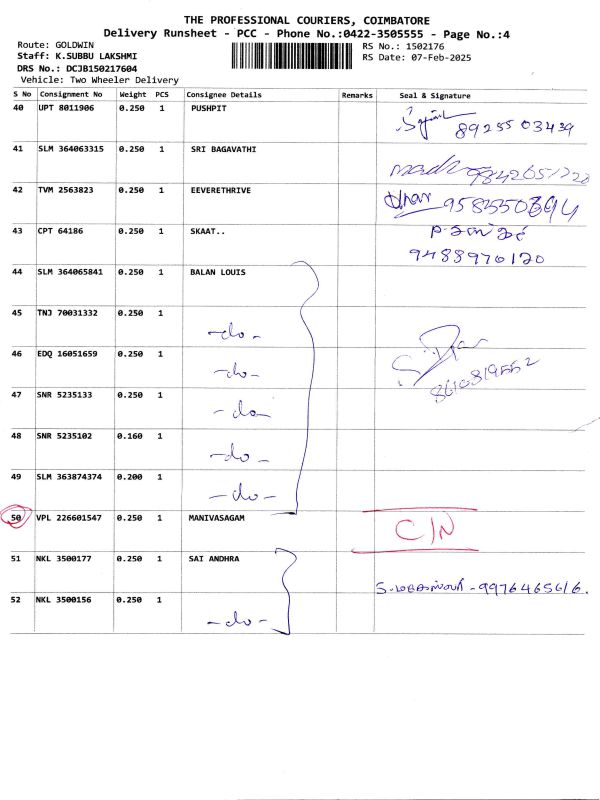 THE PROFESSIONAL COURIERS, COIMBATORE
Delivery Runsheet - PCC - Phone No.:0422-3505555 - Page No.:4
Route: GOLDWIN RS No.: 1502176
Staff: K.SUBBU LAKSHMI RS Date: 07-Feb-2025
DRS No.: DCJB150217604
Vehicle: Two Wheeler Delivery
S No Consignment No Weight PCS Consignee Details Remarks Seal & Signature
40 UPT 8011906 0.250 1 PUSHPIT
8925503439
41 SLM 364063315 0.250 1 SRI BAGAVATHI
42 TVM 2563823 0.250 1 EEVERETHRIVE
43 CPT 64186 0.250 1 SKAAT..
9488976120
44 SLM 364065841 0.250 1 BALAN LOUIS
45 TNJ 70031332 0.250 1 -do-
46 EDQ 16051659 0.250 1 -do-
8610819552
47 SNR 5235133 0.250 1 -do-
48 SNR 5235102 0.160 1 -do-
49 SLM 363874374 0.200 1 -do-
50 VPL 226601547 0.250 1 MANIVASAGAM C/N
51 NKL 3500177 0.250 1 SAI ANDHRA
- 9976465616.
52 NKL 3500156 0.250 1 -do-